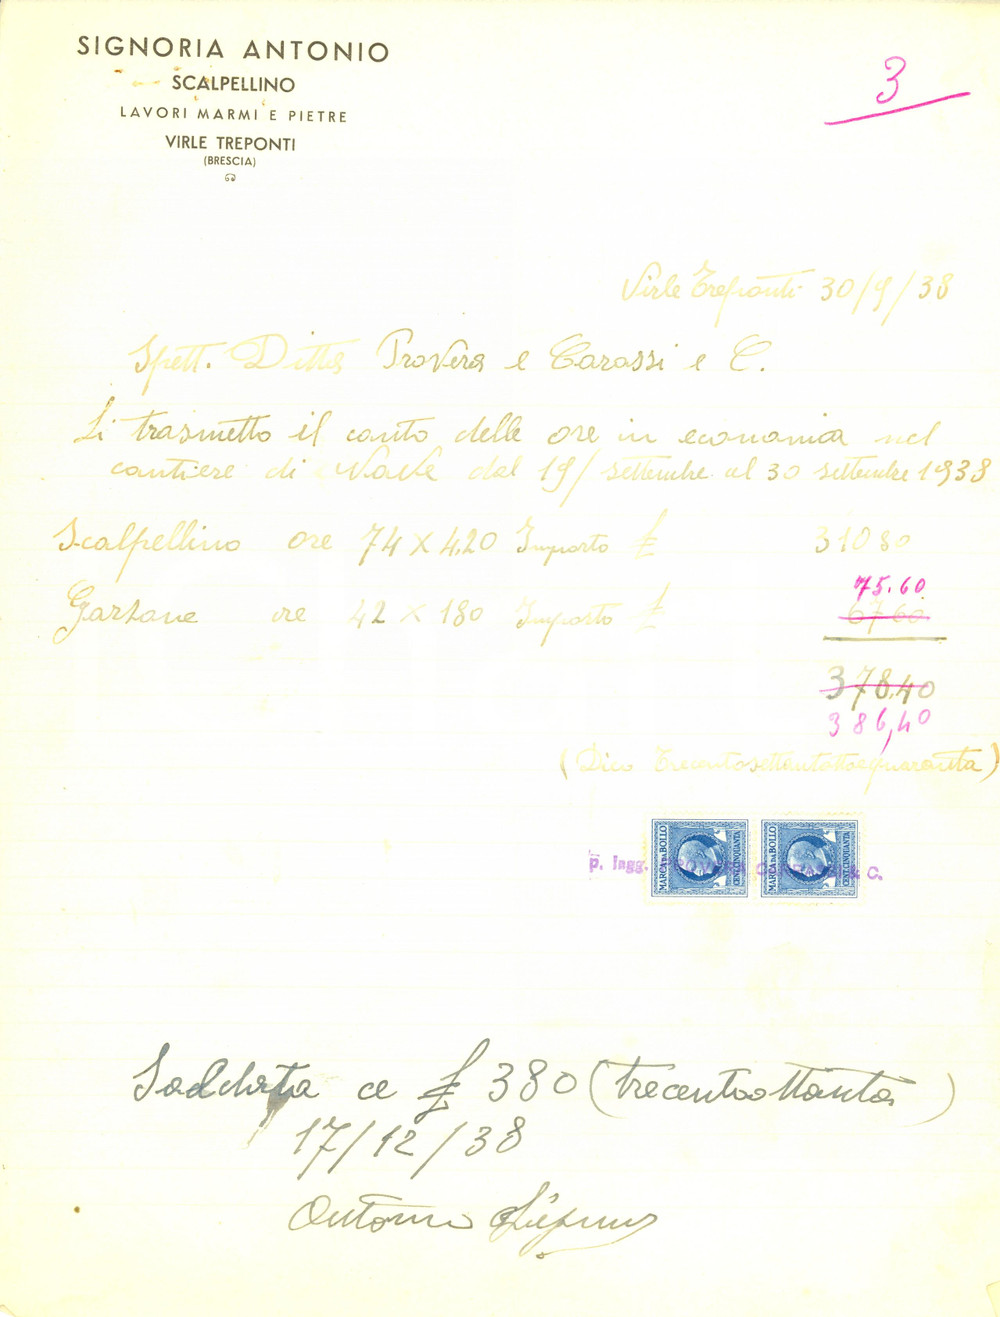 SIGNORIA ANTONIO
SCALPELLINO
LAVORI MARMI E PIETRE
VIRLE TREPONTI
(BRESCIA)
3
Virle Treponti 30/9/38
Spett. Ditta Provera e Carassi e C.
Li trasmetto il conto delle ore in economia nel
cantiere di Nave dal 19/ settembre al 30 settembre 1938
Scalpellino ore 74 x 4.20 Importo £ 310 80
75.60
Garzone ore 42 x 180 Importo £ 67 60
378.40
386,40
(Dico Trecentosettantottoequaranta)
MARCA DA BOLLO CENT. CINQUANTA
MARCA DA BOLLO CENT. CINQUANTA
p. Ingg. PROVERA CARASSI & C.
£ 380 (trecentoottanta)
17/12/38
Antonio